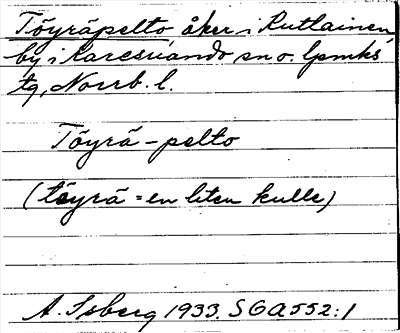 Töyräpelto åker i Kutlainen
by i Karesuando sn o. lpmks
tg, Norrb. l.
Töyrä-pelto
(töyrä = en liten kulle)
A. Isberg 1933. SGA 552:1